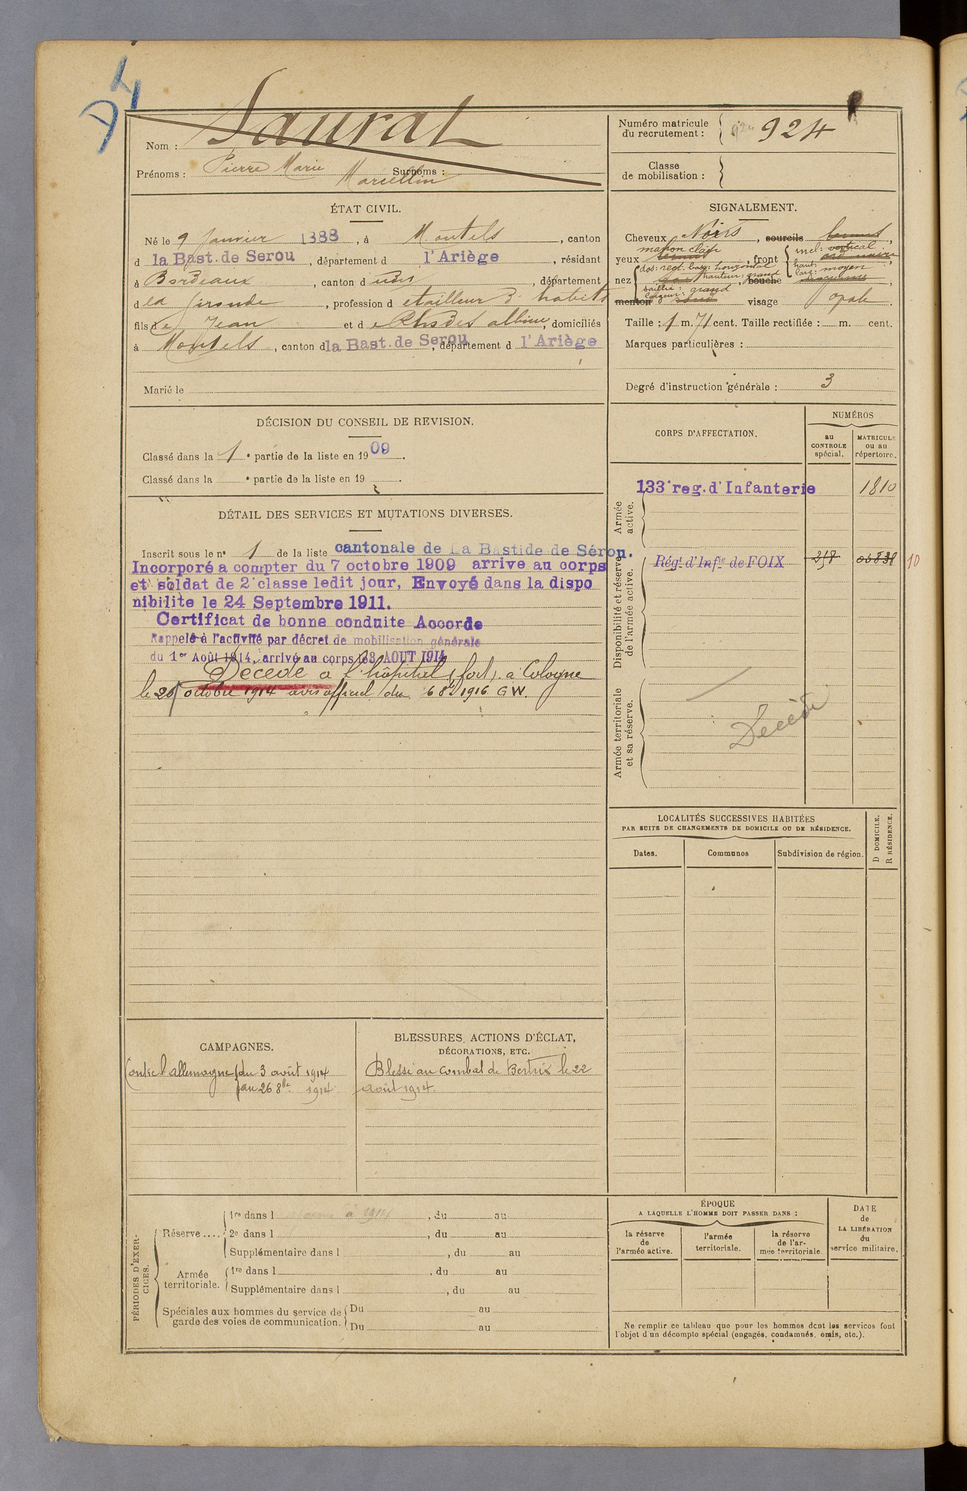 Nom : Saurat
Prénoms : Pierre Marie Marcellin Surnoms :
Numéro matricule du recrutement : 924
Classe de mobilisation :
ÉTAT CIVIL.
Né le 9 Janvier 1888, à Montels, canton
d la Bast. de Serou, département d l'Ariège, résidant
à Bordeaux, canton d udit, département
d e la Gironde, profession d e tailleur d'habits
fils d e Jean et d e , domiciliés
à Montels, canton d la Bast. de Serou, département d l'Ariège
Marié le
SIGNALEMENT.
Cheveux Noirs, sourcils
yeux marron clair, front incl: vertical
haut: larg: moyen
nez dos: rect. base: horizontal hauteur: grand, bouche
saillie: grand
menton visage ovale
Taille : 1 m. 71 cent. Taille rectifiée : m. cent.
Marques particulières :
Degré d'instruction générale : 3
DÉCISION DU CONSEIL DE REVISION.
Classé dans la 1e partie de la liste en 1909.
Classé dans la e partie de la liste en 19 .
DÉTAIL DES SERVICES ET MUTATIONS DIVERSES.
Inscrit sous le n° 1 de la liste cantonale de La Bastide de Sérou.
Incorporé a compter du 7 octobre 1909 arrive au corps
et soldat de 2e classe ledit jour, Envoyé dans la dispo
nibilite le 24 Septembre 1911.
Certificat de bonne conduite Accorde
Rappelé à l'activité par décret de mobilisation générale
du 1er Août 1914, arrivé au corps 3 AOUT 1914
Décédé à l'hôpital (fort), à Cologne
le 26 octobre 1914 avis officiel du 6 8bre 1916 G W.
CORPS D'AFFECTATION.
NUMÉROS
au CONTROLE spécial.
MATRICULE ou au répertoire.
Armée active.
133e reg. d'Infanterie 1810
Disponibilité et réserve de l'armée active.
Régt d'Infie de FOIX 10
Armée territoriale et sa réserve.
Décédé
LOCALITÉS SUCCESSIVES HABITÉES
PAR SUITE DE CHANGEMENTS DE DOMICILE OU DE RÉSIDENCE.
Dates.
Communes
Subdivision de région.
D DOMICILE.
R RÉSIDENCE.
CAMPAGNES.
Contre l'allemagne du 3 août 1914
au 26 8bre 1914
BLESSURES, ACTIONS D'ÉCLAT,
DÉCORATIONS, ETC.
Blessé au combat de Bertrix le 22
août 1914.
PÉRIODES D'EXERCICES.
Réserve ....
1re dans l , du au
2e dans l , du au
Supplémentaire dans l , du au
Armée territoriale.
1re dans l , du au
Supplémentaire dans l , du au
Spéciales aux hommes du service de garde des voies de communication.
Du au
Du au
ÉPOQUE
A LAQUELLE L'HOMME DOIT PASSER DANS :
la réserve de l'armée active.
l'armée territoriale.
la réserve de l'armée territoriale.
DATE de LA LIBÉRATION du service militaire.
Ne remplir ce tableau que pour les hommes dont les services font
l'objet d'un décompte spécial (engagés, condamnés, omis, etc.).